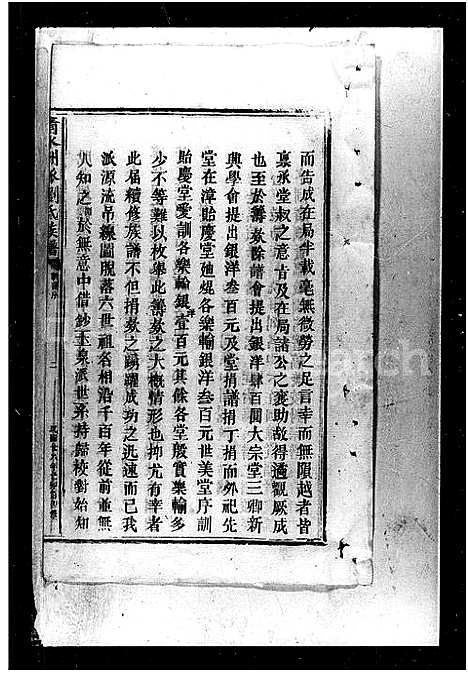 而告成在局半載毫無微勞之足言幸而無隕越者皆
稟承堂叔之意旨及在局諸公之襄助故得適觀厥成
也至於籌欵除譜會提出銀洋肆百圓大宗堂三鄉新
興學會提出銀洋叁百元及堂捐譜捐丁捐而外祀先
堂在漳貽慶堂迆焜各樂輸銀洋叁百元世美堂序訓
貽慶堂愛訓各樂輸銀洋壹百元其餘各堂殷實樂輸多
少不等難以枚舉此籌欵之大概情形也抑尤有幸者
此屆續修族譜不但捐欵之踴躍成功之迅速而已我
派源流吊線圖脫落六世祖名相沿千百年從前並無
人知之於無意中借鈔玉泉派世系持歸校對始知
洲派劉氏族譜